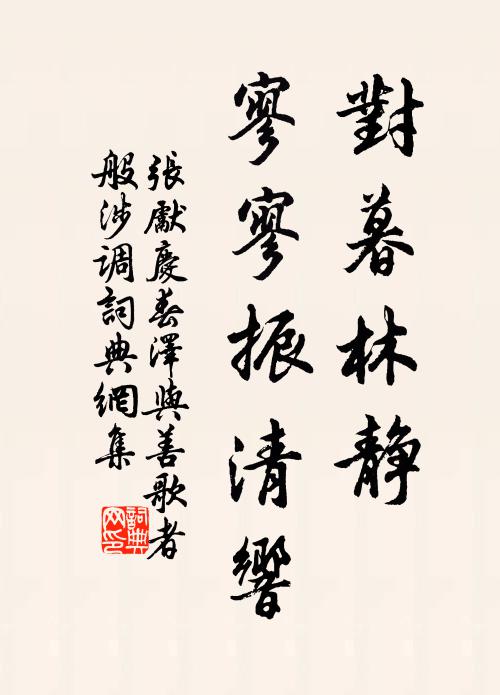 對暮林静
寥寥振清響
張獻慶春澤與善歌者
般涉调詞典網集
詞典
网印